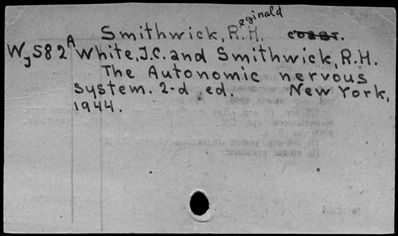 Smithwick, R.H. eginald соавт.
WJ582A White, J.C. and Smithwick, R.H.
The Autonomic nervous
system. 2-d ed. New York,
1944.